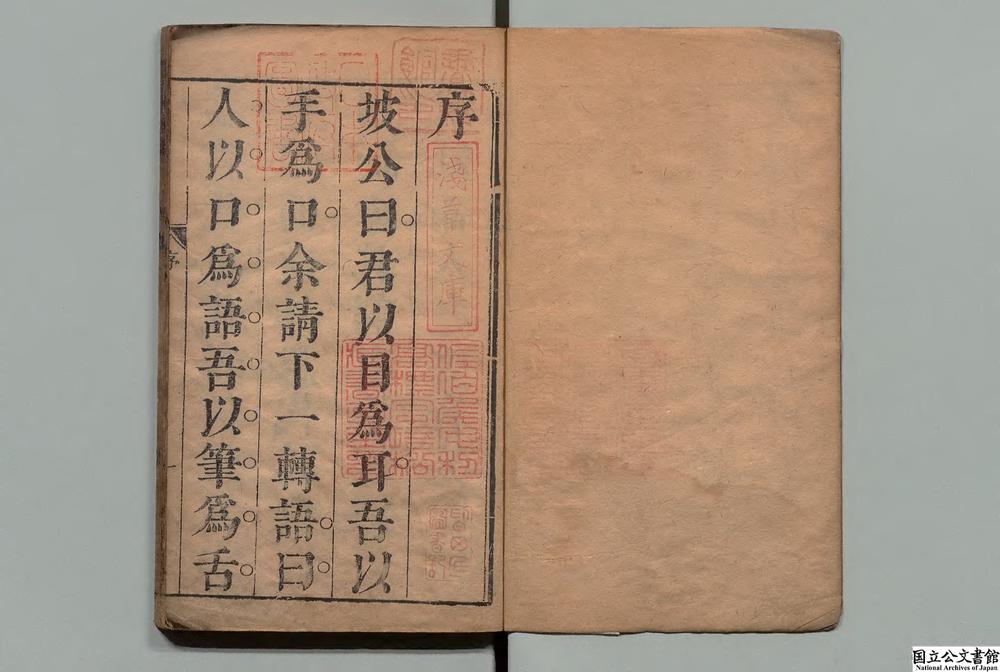 序
坡公曰君以目爲耳吾以
手爲口余請下一轉語曰
人以口爲語吾以筆爲舌
序
一
淺草文庫
国立公文書館
National Archives of Japan